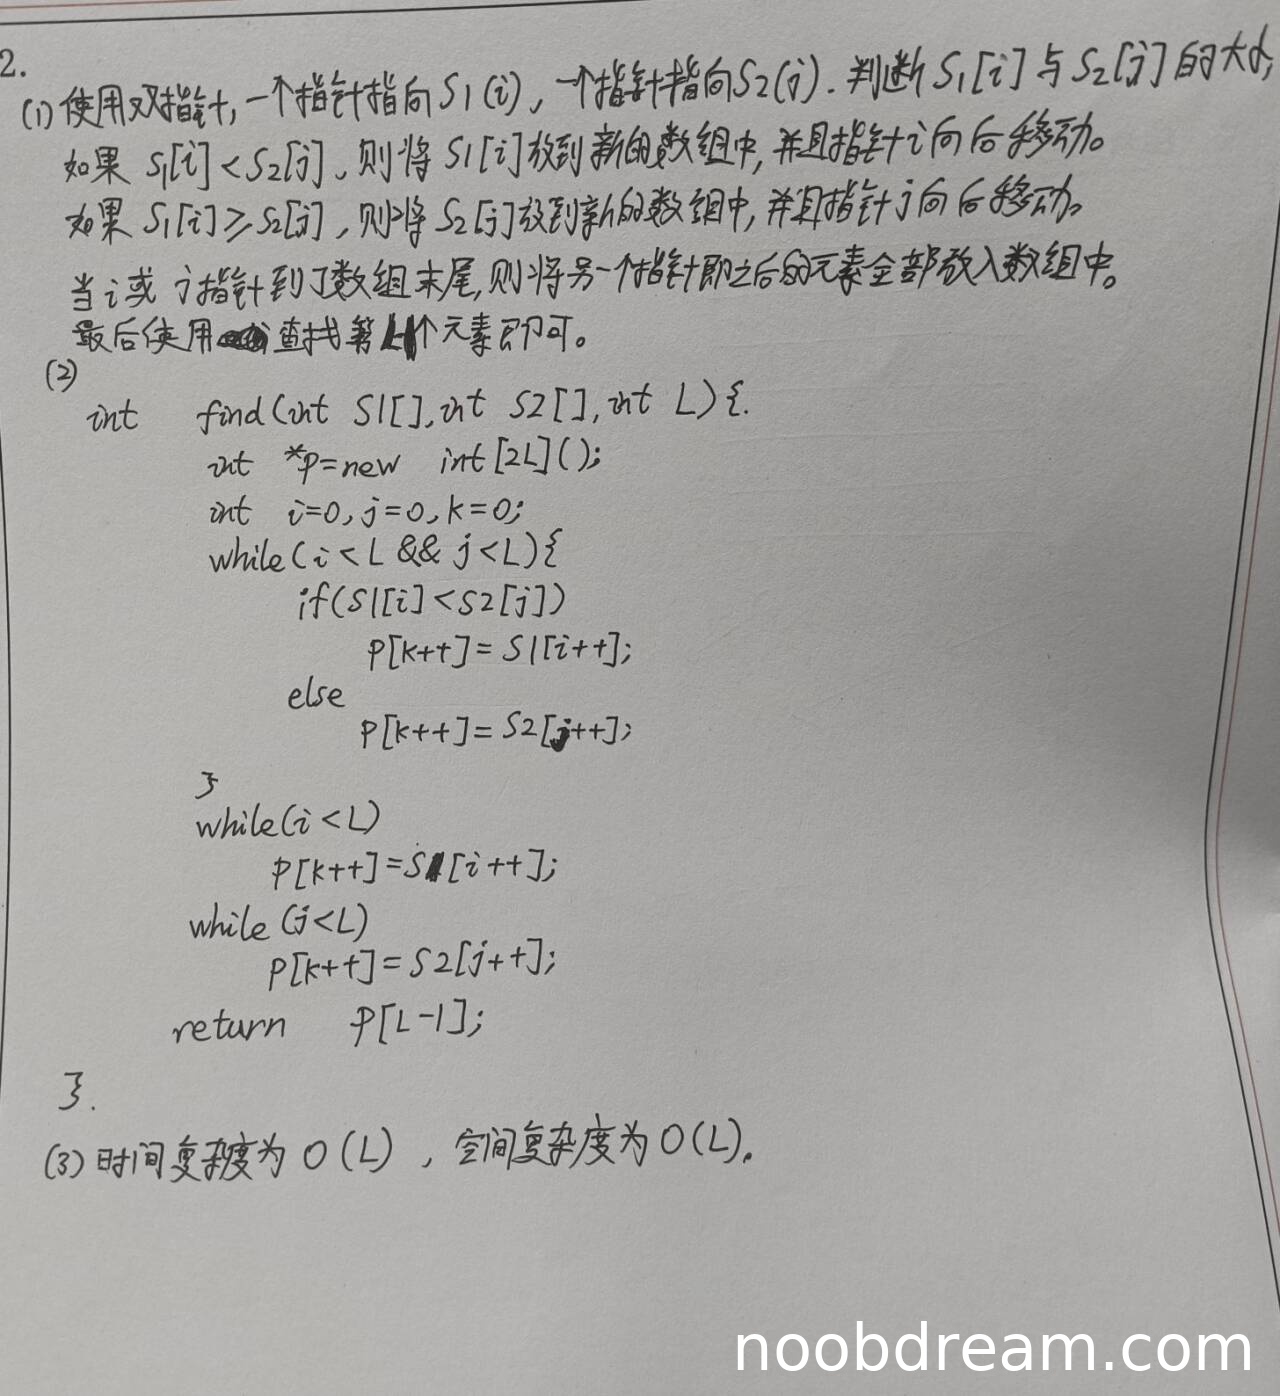 2.
(1) 使用双指针,一个指针指向S1(i),一个指针指向S2(j).判断S1[i]与S2[j]的大小,
如果 S1[i]<S2[j],则将 S1[i]放到新的数组中,并且指针i向后移动。
如果 S1[i]≥S2[j],则将 S2[j]放到新的数组中,并且指针j向后移动。
当i或j指针到了数组末尾,则将另一个指针即之后的元素全部放入数组中。
最后使用查找第L个元素即可。
(2)
int find(int S1[],int S2[],int L){.
int *p=new int[2L]();
int i=0,j=0,k=0;
while(i<L && j<L){
if(S1[i]<S2[j])
P[k++]=S1[i++];
else
P[k++]=S2[j++];
}
while(i<L)
P[k++]=S1[i++];
while(j<L)
P[k++]=S2[j++];
return P[L-1];
}.
(3)时间复杂度为O(L),空间复杂度为O(L).
noobdream.com